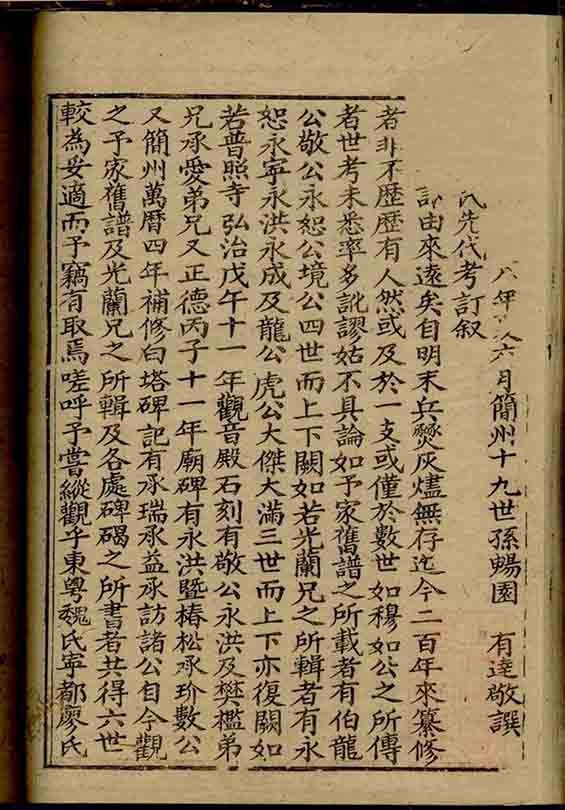 八年 六月簡州十九世孫暢園 有達敬譔
氏先代考訂叙
由來遠矣自明末兵燹灰燼無存迄今二百年來纂修
者非不歷歷有人然或及於一支或僅於數世如穆如公之所傳
者世考未悉率多訛謬姑不具論如予家舊譜之所載者有伯龍
公敬公永恕公境公四世而上下闕如若光蘭兄之所輯者有永
恕永寧永洪永成及龍公虎公大傑大滿三世而上下亦復闕如
若普照寺弘治戊午十一年觀音殿石刻有敬公永洪及樊檻弟
兄承愛弟兄又正德丙子十一年廟碑有永洪暨椿松承玠數公
又簡州萬曆四年補修白塔碑記有承瑞承益承訪諸公自今觀
之予家舊譜及光蘭兄之所輯及各處碑碣之所書者共得六世
較為妥適而予竊有取焉嗟呼予嘗縱觀乎東粵魏氏寧都廖氏